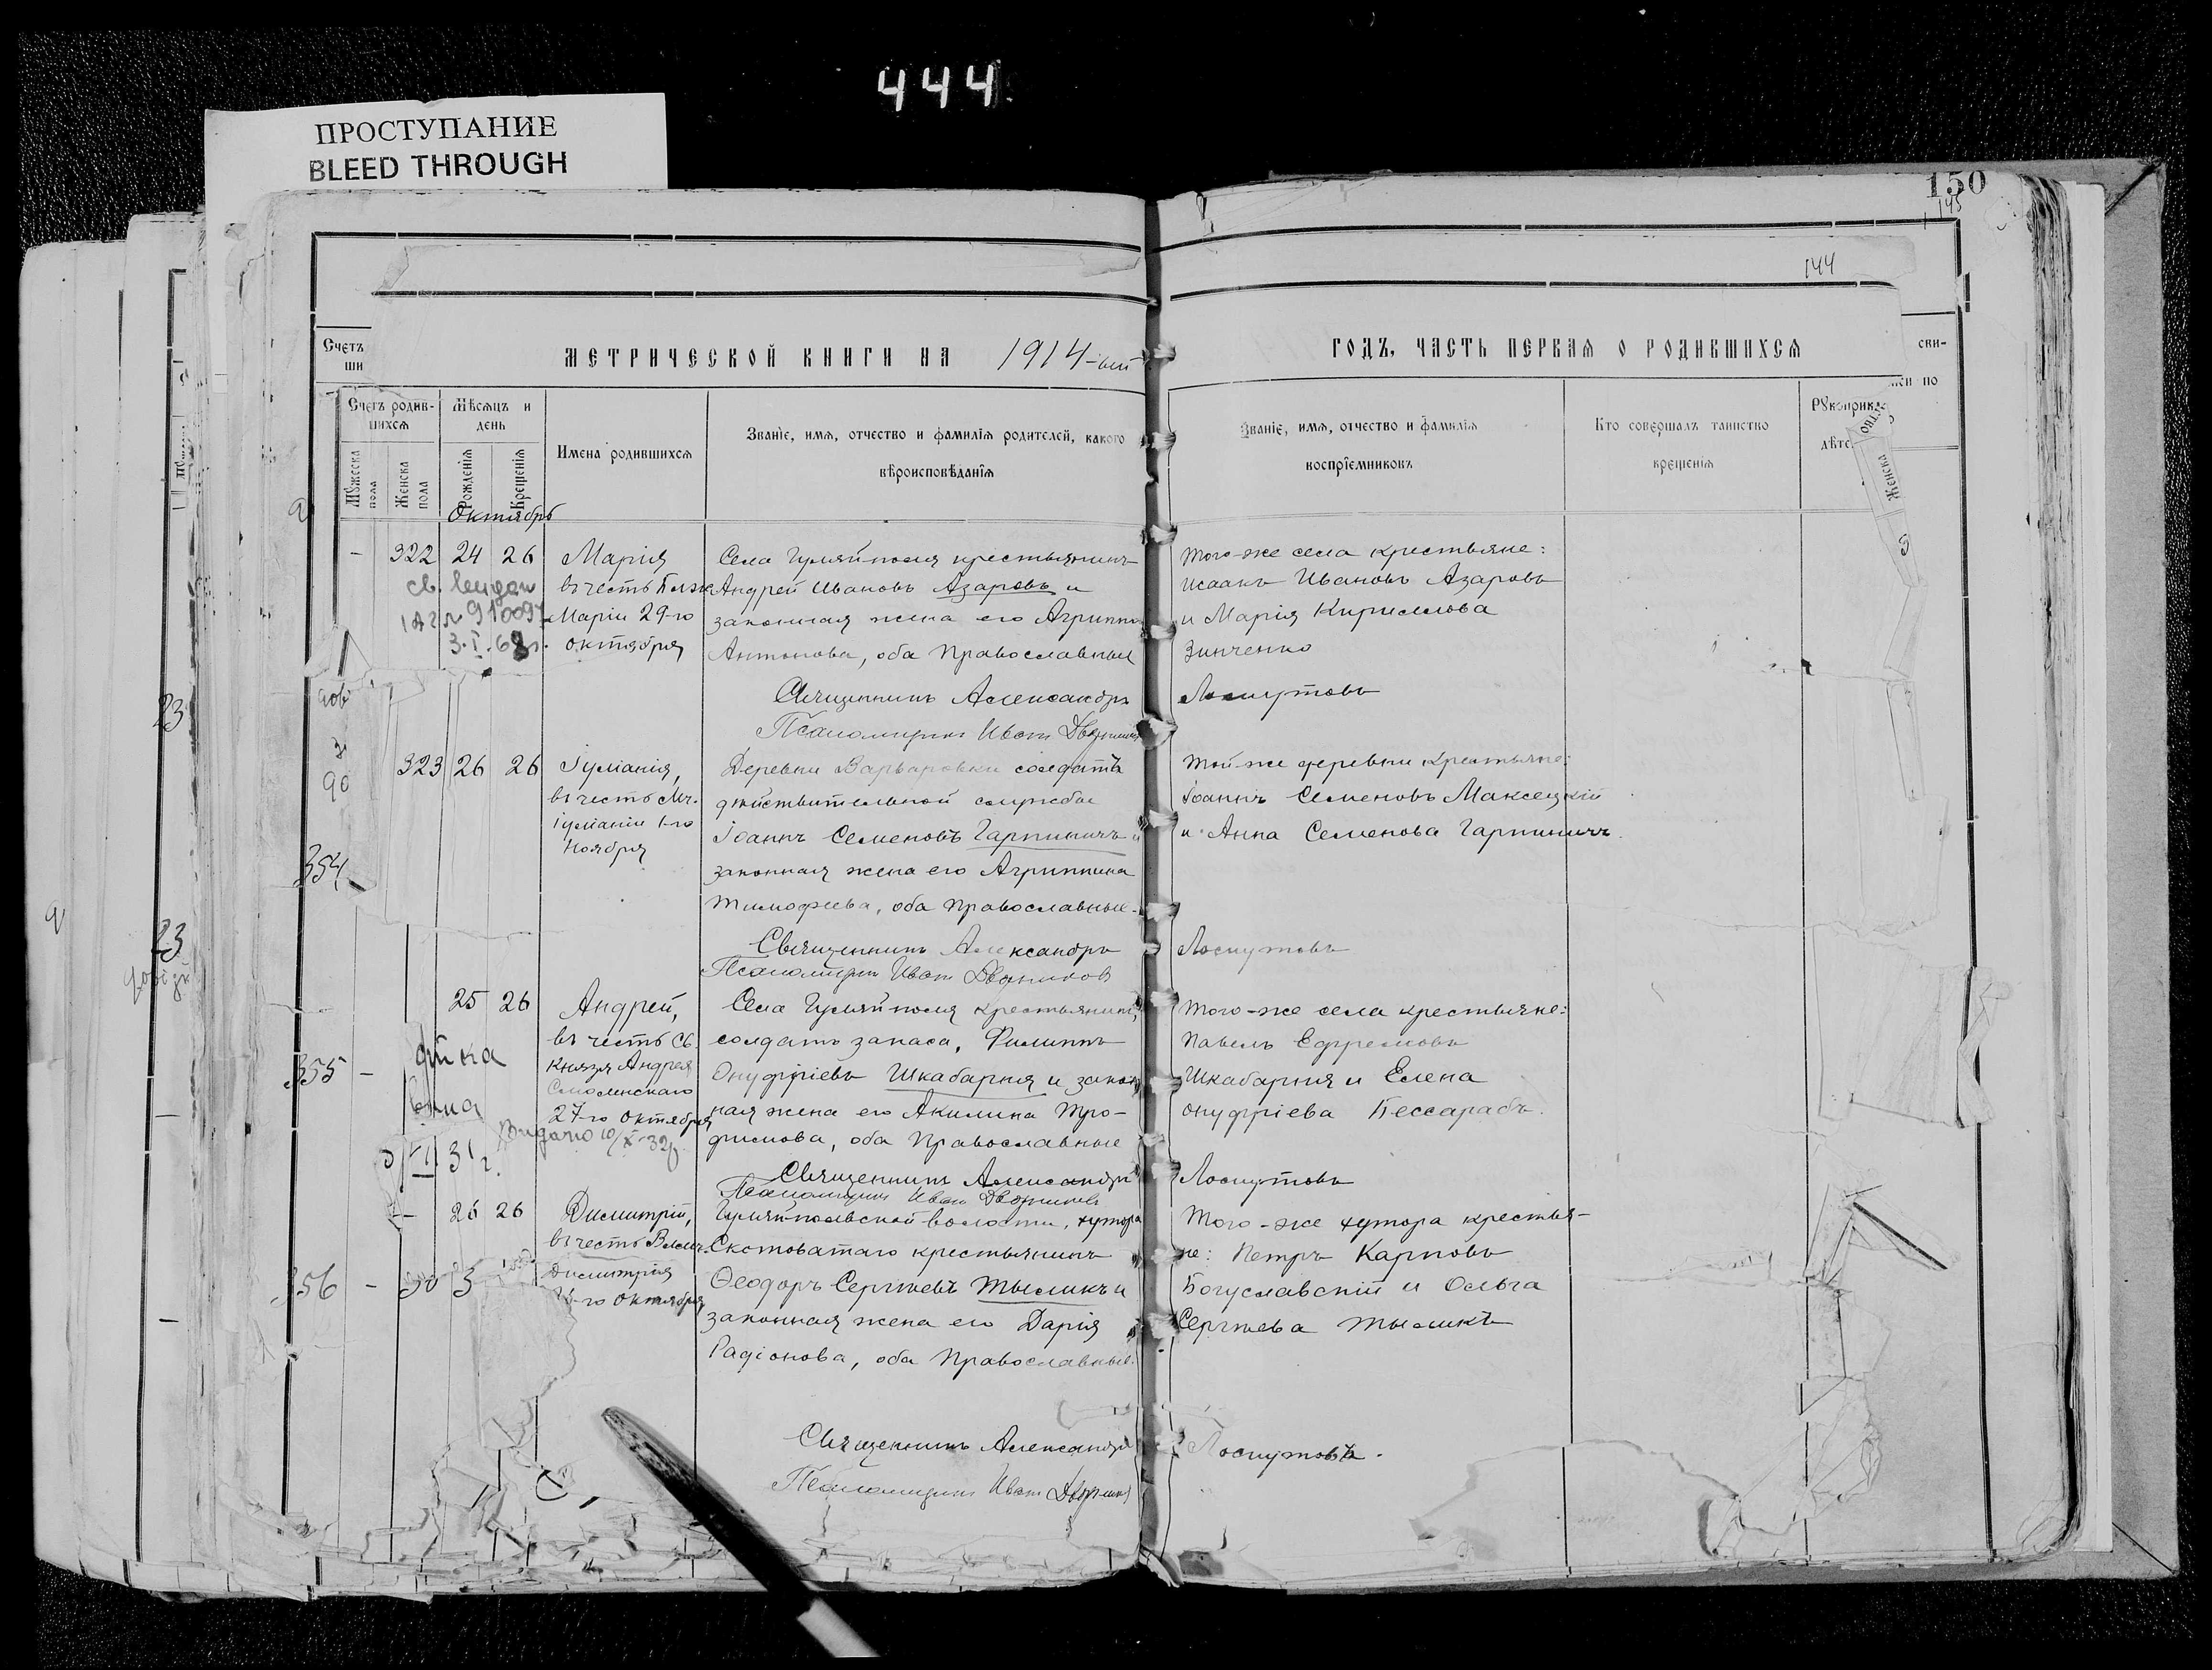 444
ПРОСТУПАНИЕ
BLEED THROUGH
150
145
144
Счетъ
ши
МЕТРИЧЕСКОЙ КНИГИ НА 1914-ый
ГОДЪ, ЧАСТЬ ПЕРВАЯ О РОДИВШИХСЯ
сви-
по
Счетъ родив-
шихся
Мѣсяцъ и
день
Имена родившихся
Званіе, имя, отчество и фамилія родителей, какого
вѣроисповѣданія
Званіе, имя, отчество и фамилія
воспріемниковъ
Кто совершалъ таинство
крещенія
Рукоприк
дѣтс
Мужеска пола
Женска пола
Рожденія
Крещенія
Женска
Октябрь
- 322 24 26 Марія
въ честь Блаж
Маріи 29-го
октября
св. выдан
3.I.68г.
Села Гуляйполя крестьянинъ
Андрей Ивановъ Азаровъ и
законная жена его Агриппи
Антонова, оба православные
Того-же села крестьяне:
Исаакъ Ивановъ Азаровъ
и Марія Кириллова
Зинченко
Священникъ Александръ Лоскутовъ
Псаломщикъ Иван
323 26 26 Іуліанія,
въ честь Мч.
Іуліаніи 1-го
Ноября
Деревни Варваровки солдатъ
дѣйствительной службы
Іоаннъ Семеновъ Гарпиничъ и
законная жена его Агриппина
Тимофеева, оба православные.
Той-же деревни крестьяне:
Іоаннъ Семеновъ Максецкій
и Анна Семенова Гарпиничъ.
354
Священникъ Александръ Лоскутовъ
Псаломщикъ Иван
23
23
25 26 Андрей,
въ честь Св.
Князя Андрея
Смоленскаго
27-го октября
Села Гуляйполя крестьянинъ,
солдатъ запаса, Филиппъ
Онуфріевъ Шкабарня и закон
ная жена его Акилина Тро-
фимова, оба православные
Того-же села крестьяне:
Павелъ Ефремовъ
Шкабарня и Елена
Онуфріева Бессарабъ.
355 -
31 г.
Видано 10/X-32
Священникъ Александръ Лоскутовъ
Псаломщикъ Иван
- 26 26 Димитрій,
въ честь Велмч.
Димитрія
26-го октября
Гуляйпольской волости, хутора
Скотоватаго крестьянинъ
Ѳеодоръ Сергѣевъ Тыликъ и
законная жена его Дарія
Радіонова, оба православные.
Того-же хутора крестья-
не: Петръ Карповъ
Богуславскій и Ольга
Сергѣева Тыликъ
356 - 30 3
Священникъ Александръ Лоскутовъ.
Псаломщикъ Иван